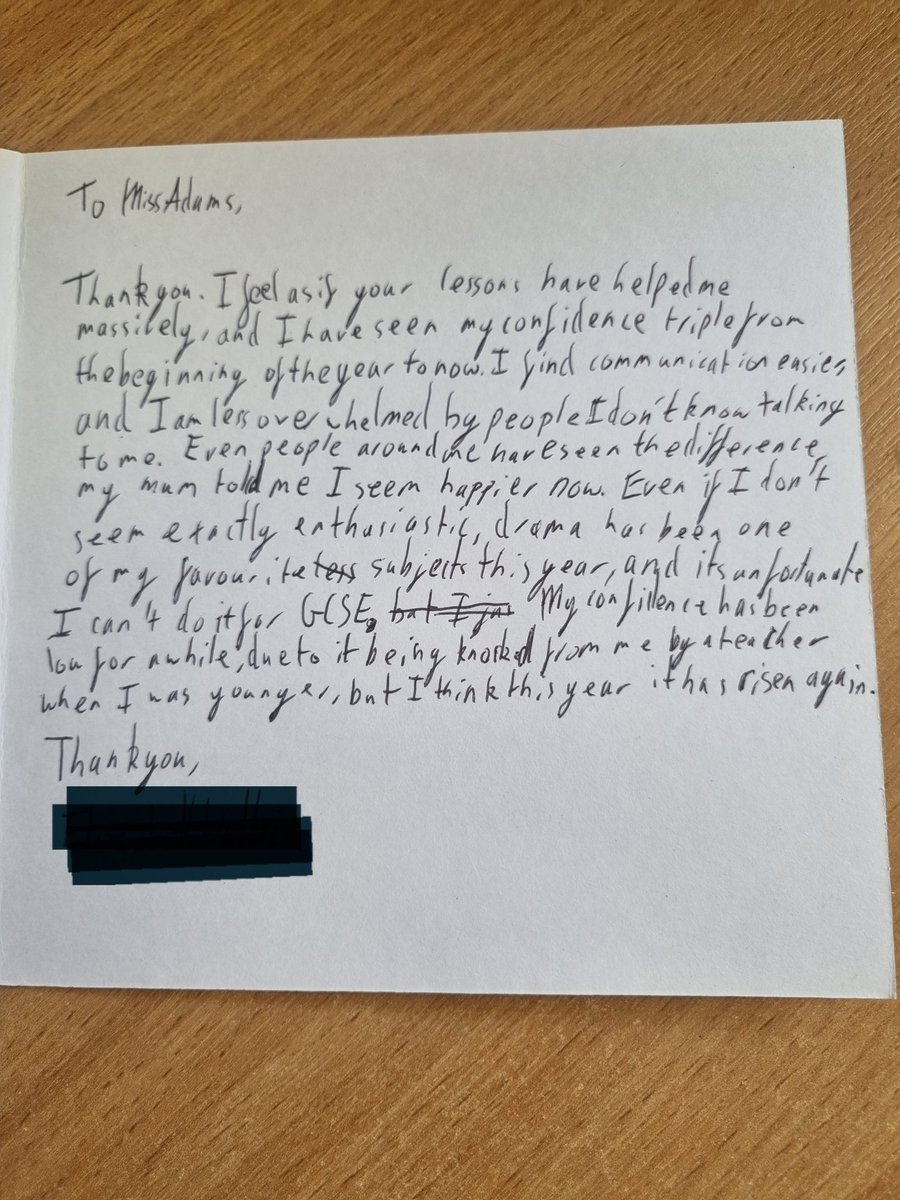 To Miss Adams,
Thankyou. I feel as if your lessons have helped me
massively, and I have seen my confidence triple from
the beginning of the year to now. I find communication easier,
and I am less overwhelmed by people I don't know talking
to me. Even people around me have seen the difference,
my mum told me I seem happier now. Even if I don't
seem exactly enthusiastic, drama has been one
of my favourite less subjects this year, and its unfortunate
I can't do it for GCSE. but I jus My confidence has been
low for awhile, due to it being knocked from me by a teacher
when I was younger, but I think this year it has risen again.
Thankyou,